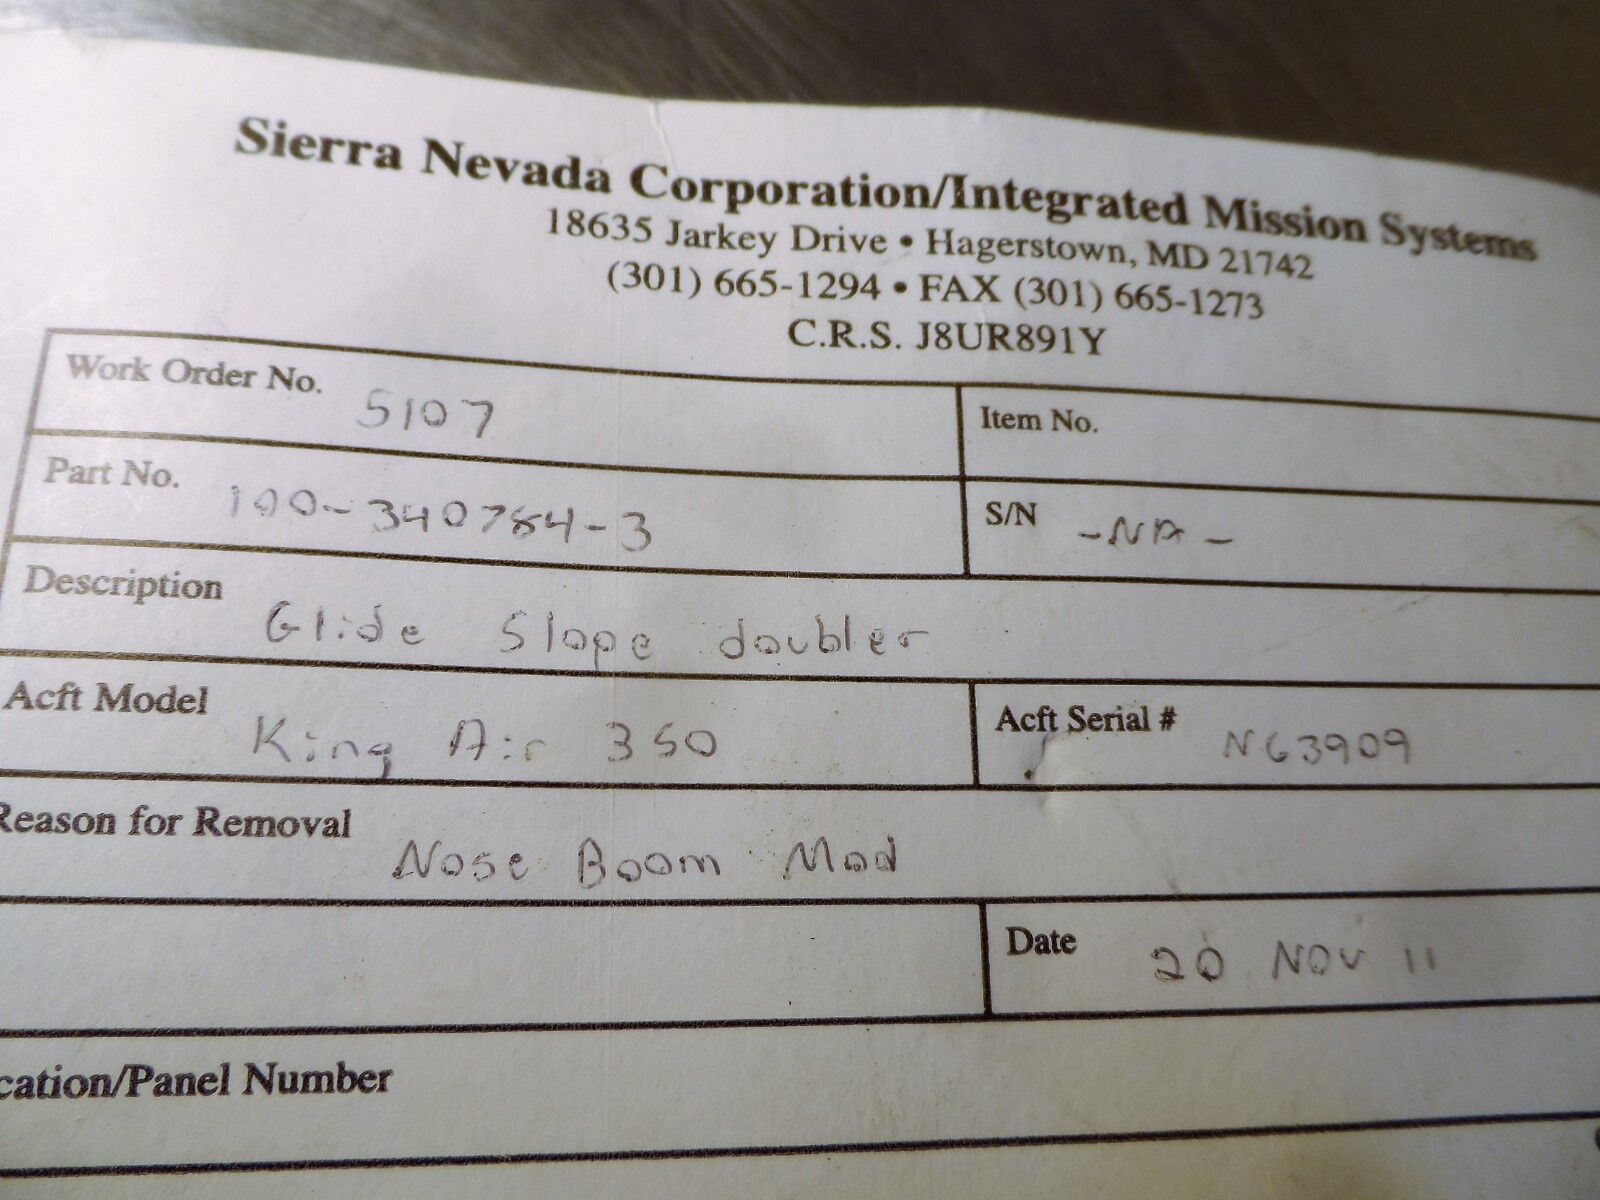 Sierra Nevada Corporation/Integrated Mission Systems
18635 Jarkey Drive • Hagerstown, MD 21742
(301) 665-1294 • FAX (301) 665-1273
C.R.S. J8UR891Y
Work Order No. 5107
Item No.
Part No. 100-340784-3
S/N -NA-
Description Glide Slope doubler
Acft Model King Air 350
Acft Serial # N63909
Reason for Removal Nose Boom Mod
Date 20 NOV 11
cation/Panel Number